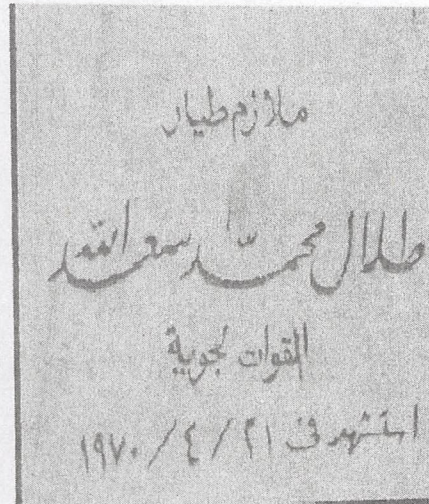 ملازم طيار
طلال محمد سعد الله
القوات الجوية
استشهد فى ٢١ / ٤ / ١٩٧٠